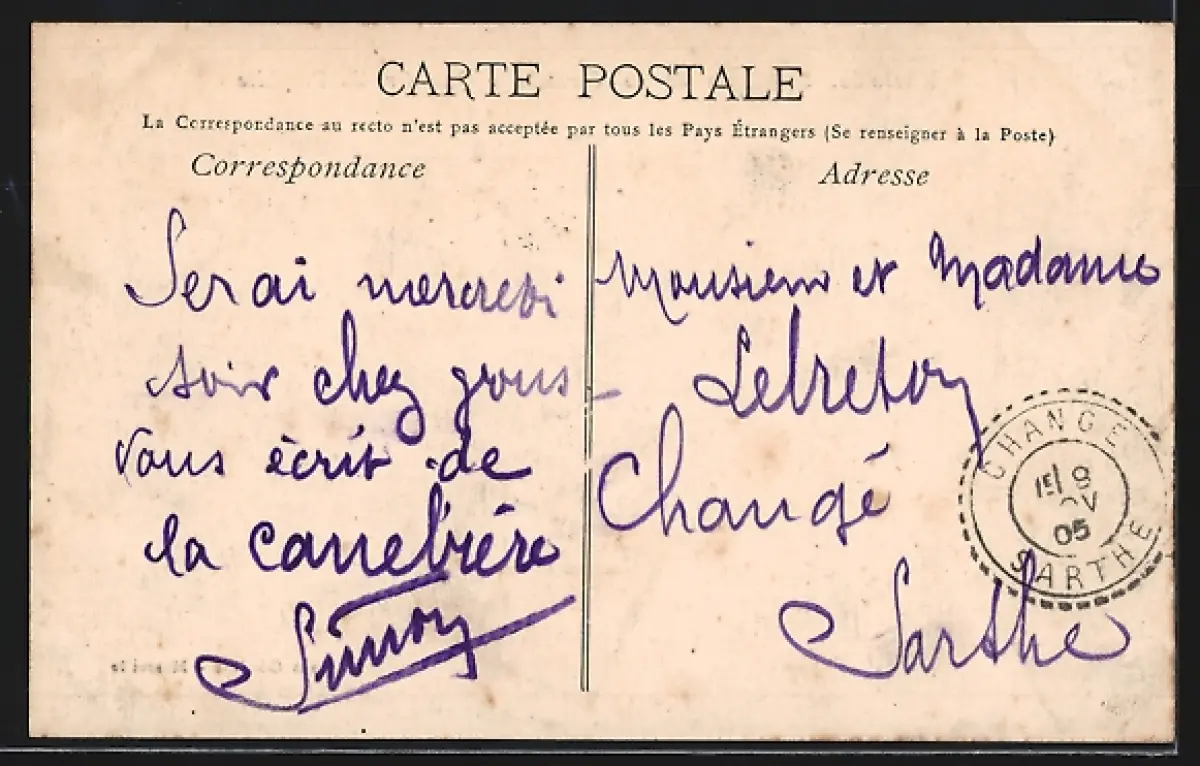 CARTE POSTALE
La Correspondance au recto n'est pas acceptée par tous les Pays Étrangers (Se renseigner à la Poste)
Correspondance
Serai mercredi
soir chez
vous écrit de
la canebière
Simon
Adresse
Monsieur et Madame
Lebreton
Changé
Sarthe
CHANGÉ
05
SARTHE